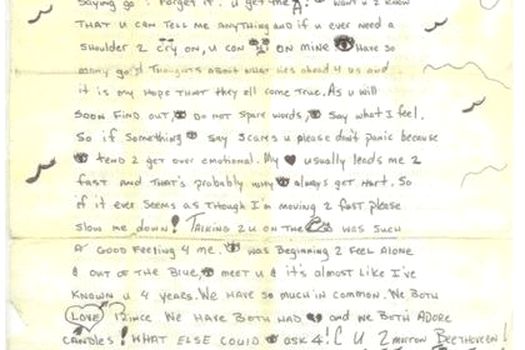 Saying go: Forget it. U get the A! 👁 want U 2 know
THAT U can TELL me ANYTHING and if U ever need a
Shoulder 2 cry on, U can cry ON mine 👁 Have so
many good Thoughts about what lies ahead 4 us and
it is my Hope THAT they all come true. As U will
SOON FIND OUT, 👁 DO NOT SPARE WORDS, 👁 SAY WHAT I FEEL.
So if Something 👁 say scares u please don't panic because
👁 TEND 2 get over emotional. My ♥ usually leads me 2
fast AND THAT'S probably why 👁 always get Hurt. So
if it ever seems as though I'm moving 2 fast please
Slow me down! TALKING 2 U ON THE ☎ WAS SUCH
A GOOD FEELING 4 ME. 👁 was BEGINNING 2 FEEL ALONE
& OUT OF THE BLUE, 👁 MEET U & it's almost Like I've
KNOWN U 4 YEARS. WE HAVE SO MUCH IN COMMON. WE BOTH
LOVE Prince WE HAVE BOTH HAD 💔 and WE BOTH ADORE
CANDLES! WHAT ELSE COULD 👁 ASK 4! C U 2morrow BEETHOVEN!